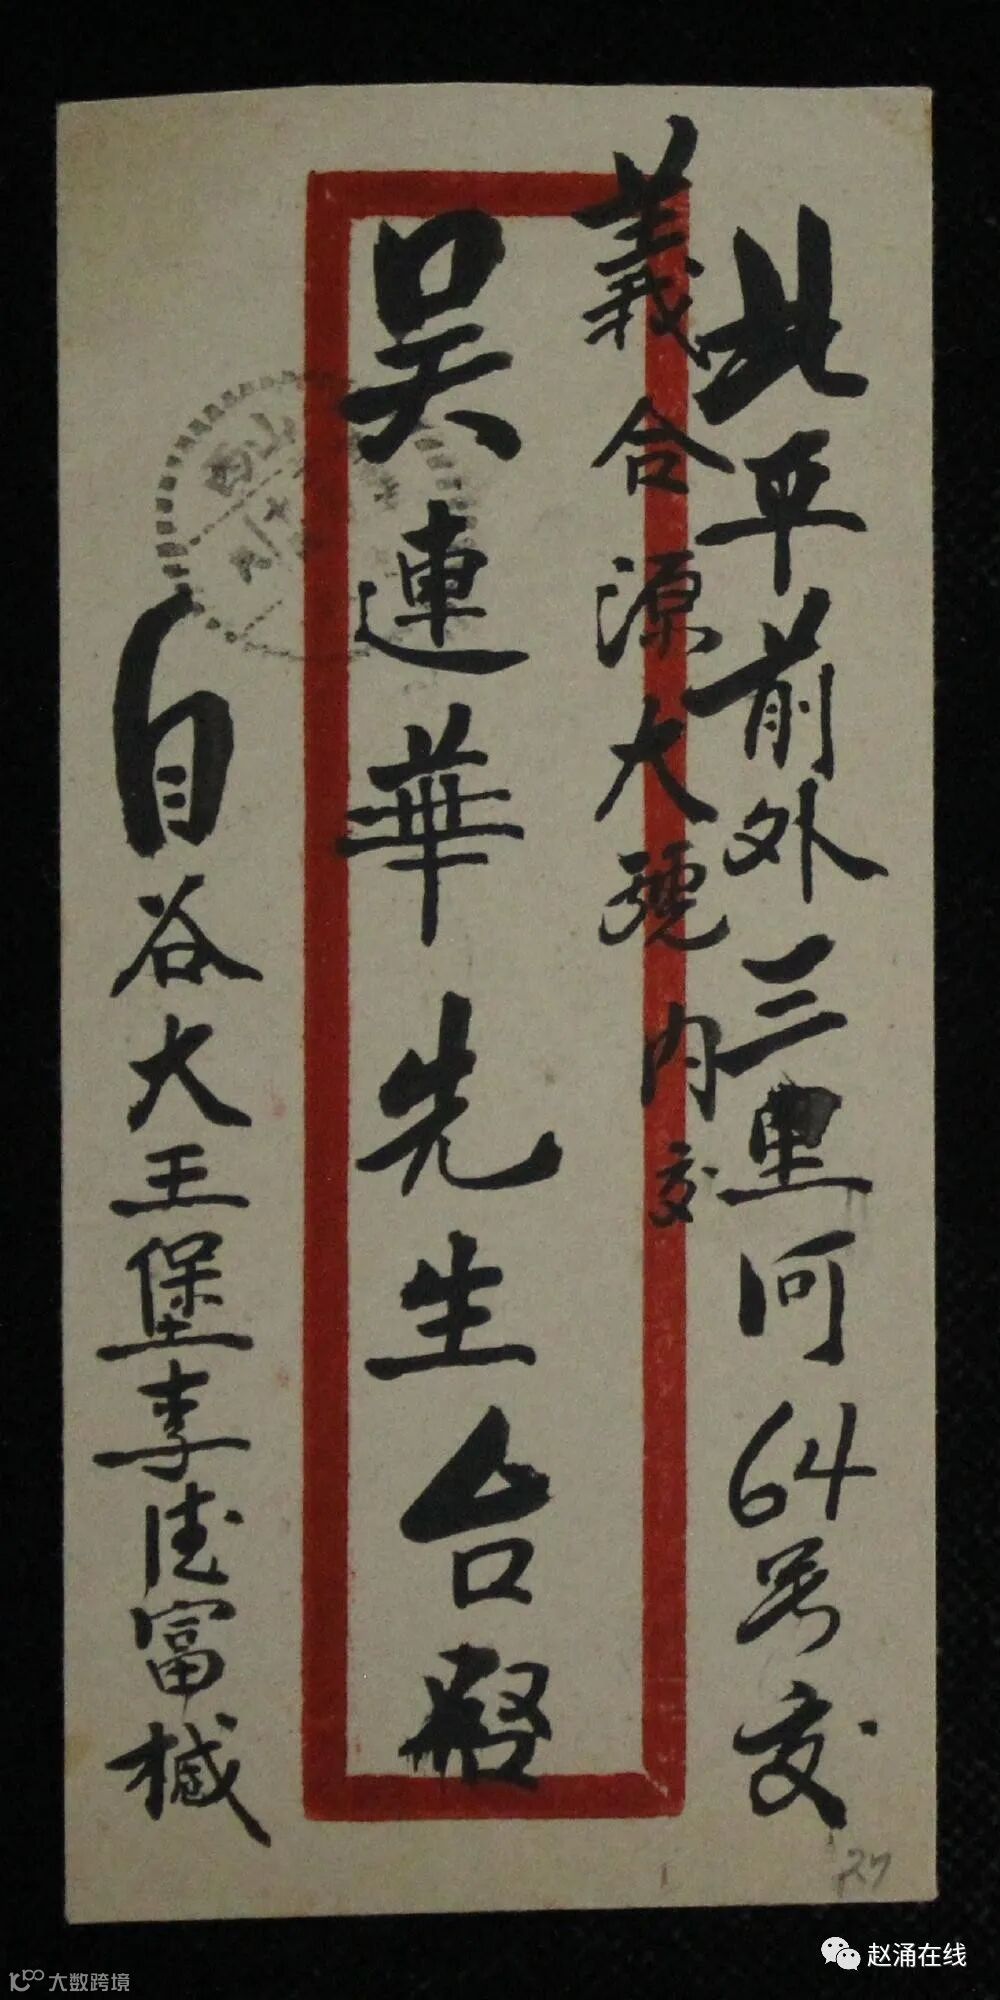 北平前外三里河64号交
義合源大號内交
吴連華先生台啓
自谷大王堡李德富槭
西山
27
赵涌在线
大数跨境